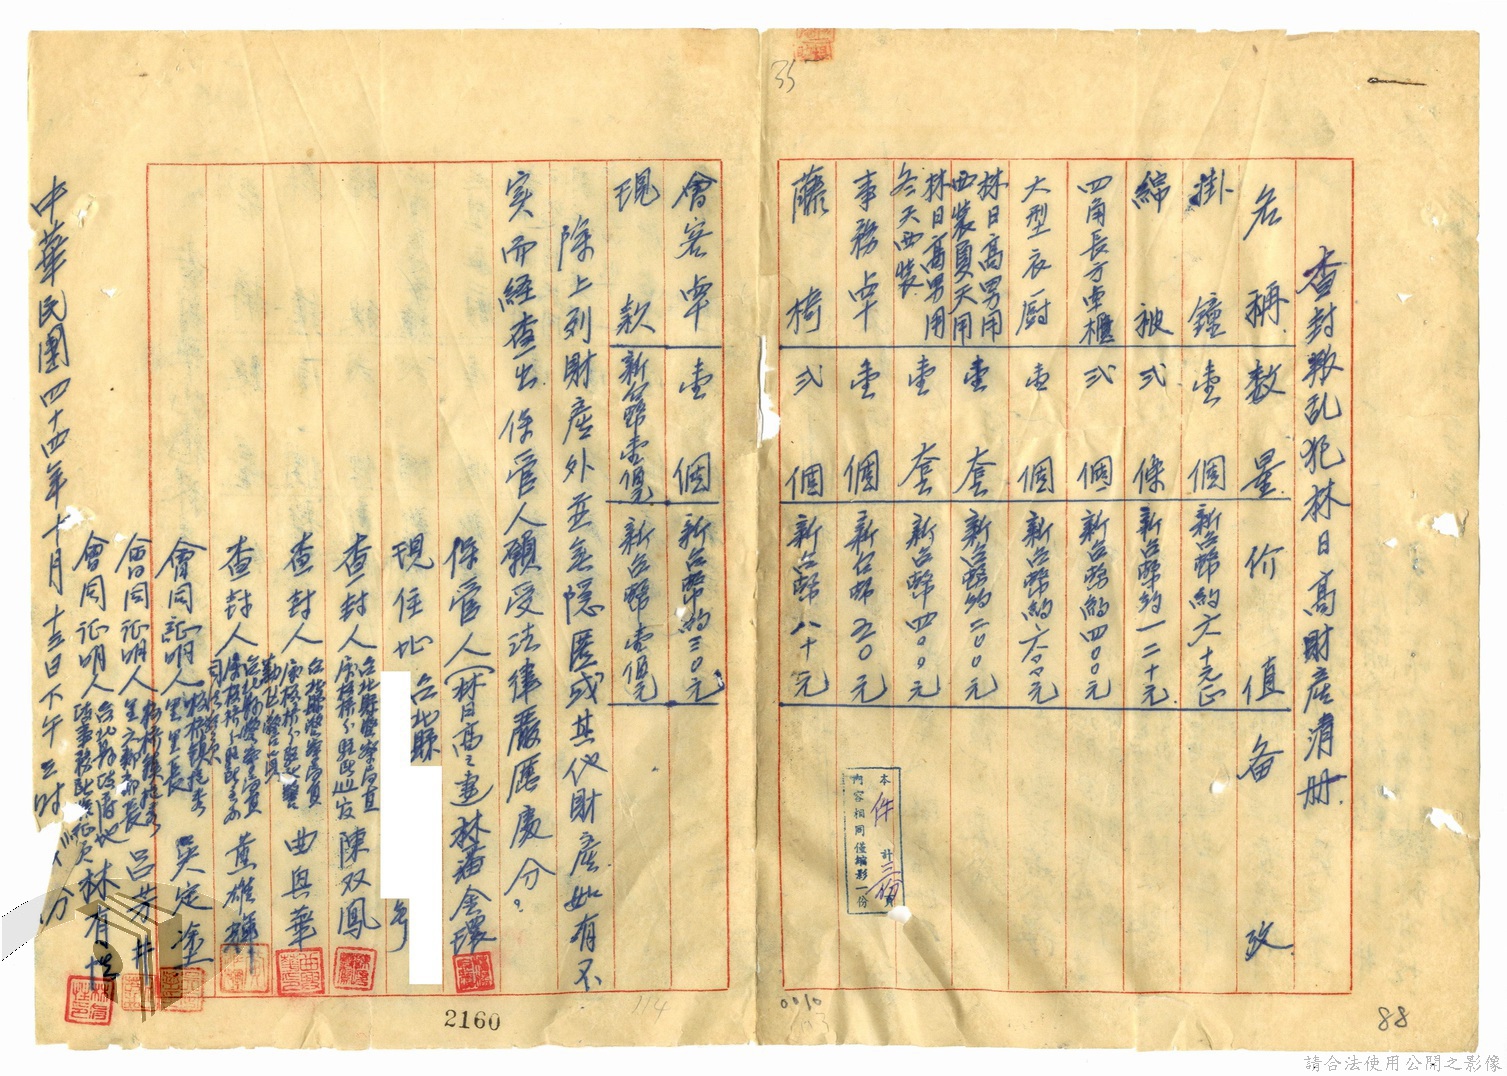 查封叛乱犯林日高財産清册
名稱 数量 价值 备攷
掛鐘 壹個 新台幣約六十元正
綿被 弍條 新台幣約一二十元
四角長方壺櫃 弍個 新台幣約四00元
大型衣厨 壹個 新台幣約六00元
林日高男用西裝夏天用 壹套 新台幣約二00元
林日高男用冬天西裝 壹套 新台幣四00元
事務卓 壹個 新台幣五0元
藤椅 弍個 新台幣八十元
會客卓 壹個 新台幣約三0元
現款 新台幣壹佰元 新台幣壹佰元
除上列財産外並無隠匿或其他財産如有不
実而経查出保管人願受法律嚴厲處分。
保管人(林日高之妻林潘金環
現住地 台北縣 号
查封人 陳双鳳
查封人 曲興華
查封人 黄雄輝
會同証明人 里里長 吳定塗
會同証明人 呂芳井
會同証明人 林有
中華民國四十四年十月十三日下午三时 分
本件計三份
内容相同僅縮影一份
35
88
0010
114
2160
請合法使用公開之影像